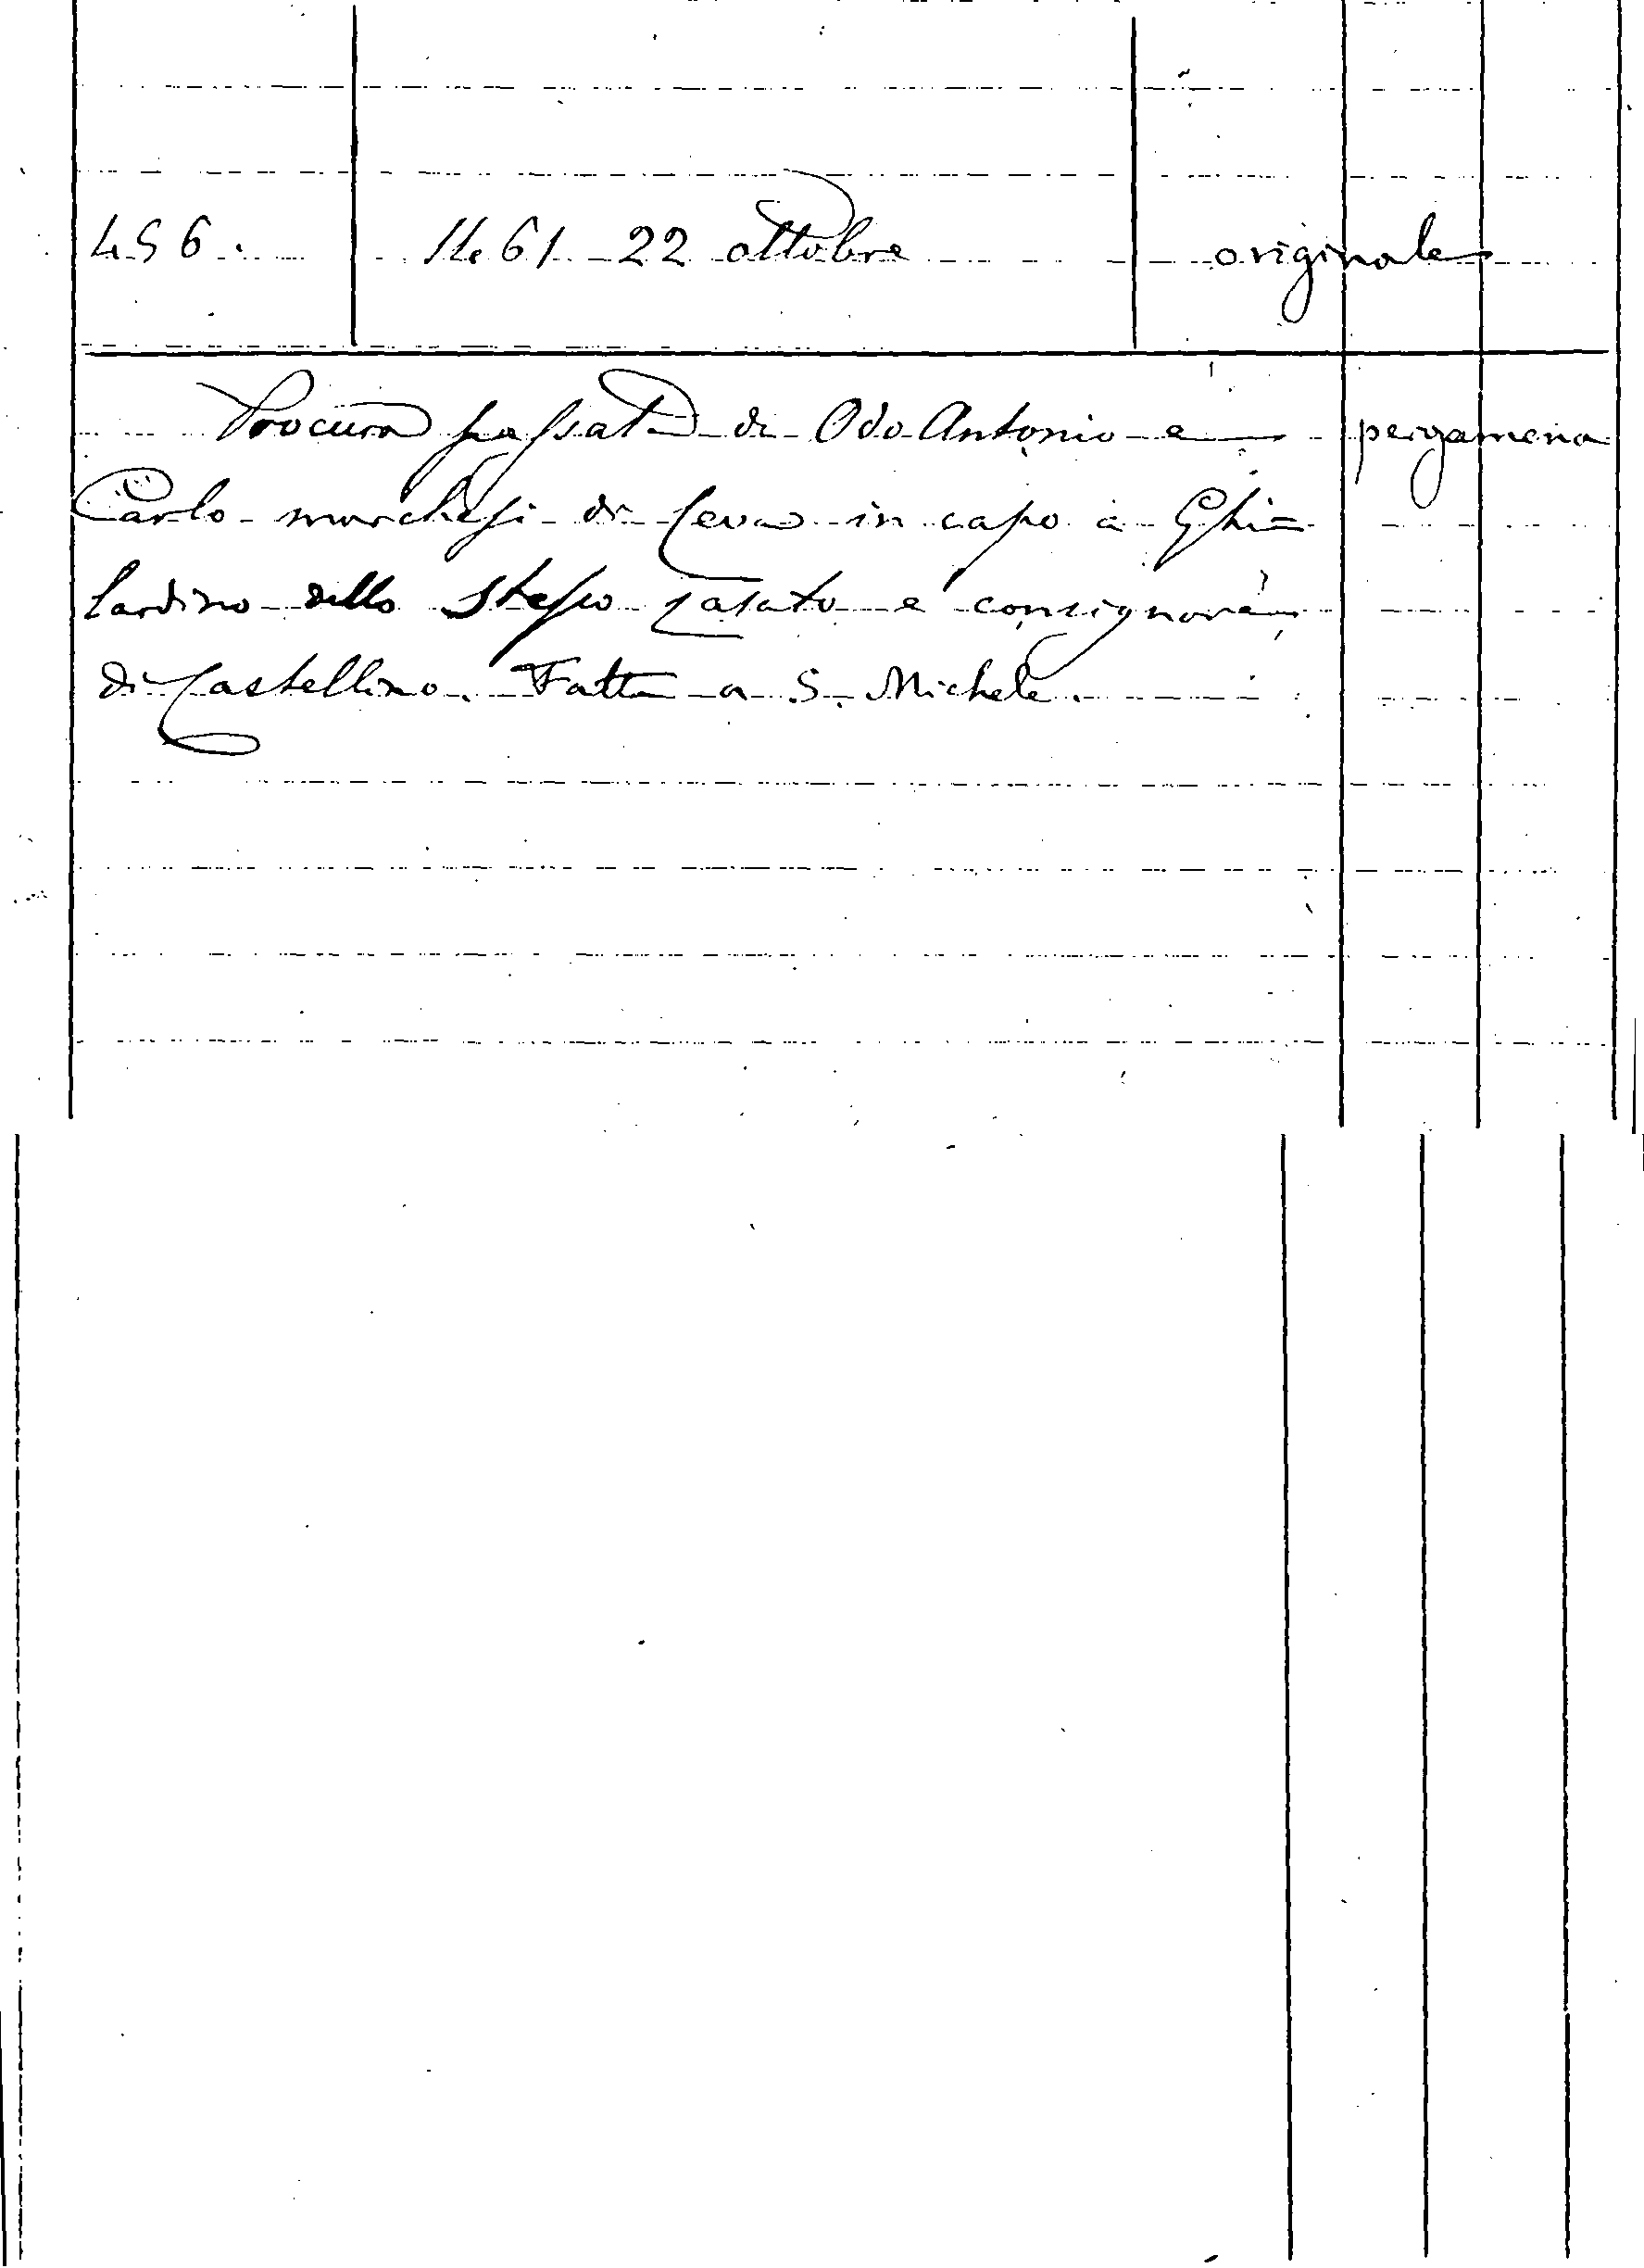 456. 1461 22 ottobre originale
Procura passata di Odo Antonio e pergamena
Carlo marchesi di Ceva in capo a Ghi=
lardino dello stesso casato e consignore
di Castellino. Fatta a S. Michele.